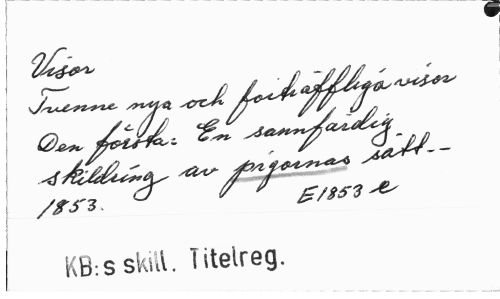 Visor
Tvenne nya och förträffliga visor
Den första: En sannfärdig
skildring av pigornas sätt.--
1853.
E1853 e
KB:s skill. Titelreg.